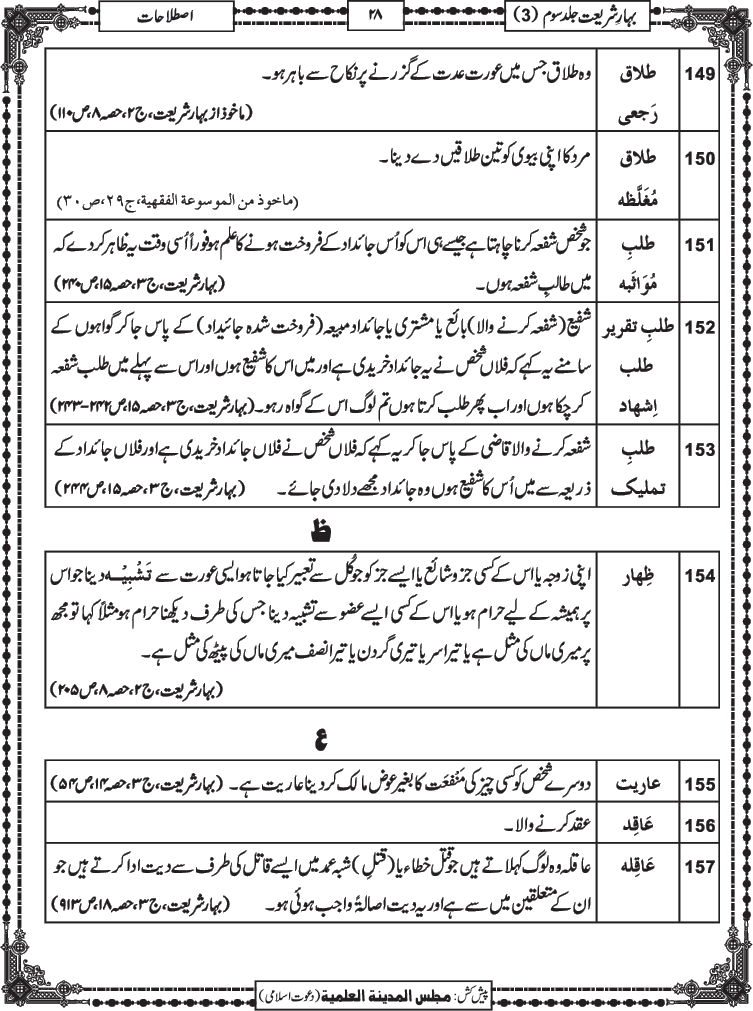 بہارِ شریعت جلد سوم (3)
۲۸
اصطلاحات
149 طلاق وہ طلاق جس میں عورت عدت کے گزرنے پر نکاح سے باہر ہو۔
رَجعی (ماخوذ از بہار شریعت، ج۲، حصہ ۸، ص۱۱۰)
150 طلاق مرد کا اپنی بیوی کو تین طلاقیں دے دینا۔
مُغَلَّظه (ماخوذ من الموسوعة الفقهية، ج۲۹، ص۳۰)
151 طلبِ جو شخص شفعہ کرنا چاہتا ہے جیسے ہی اس کو اُس جائداد کے فروخت ہونے کا علم ہو فوراً اُسی وقت یہ ظاہر کر دے کہ
مُوَاثَبه میں طالبِ شفعہ ہوں۔ (بہار شریعت، ج۳، حصہ ۱۵، ص۲۴۰)
152 طلبِ تقریر شفیع (شفعہ کرنے والا) بائع یا مشتری یا جائداد مبیعہ (فروخت شدہ جائیداد) کے پاس جا کر گواہوں کے
طلب سامنے یہ کہے کہ فلاں شخص نے یہ جائداد خریدی ہے اور میں اس کا شفیع ہوں اور اس سے پہلے میں طلب شفعہ
اِشهاد کر چکا ہوں اور اب پھر طلب کرتا ہوں تم لوگ اس کے گواہ رہو۔ (بہار شریعت، ج۳، حصہ ۱۵، ص۲۴۲-۲۴۳)
153 طلبِ شفعہ کرنے والا قاضی کے پاس جا کر یہ کہے کہ فلاں شخص نے فلاں جائداد خریدی ہے اور فلاں جائداد کے
تملیک ذریعہ سے میں اُس کا شفیع ہوں وہ جائداد مجھے دلا دی جائے۔ (بہار شریعت، ج۳، حصہ ۱۵، ص۲۴۴)
ظ
154 ظِهار اپنی زوجہ یا اس کے کسی جزو شائع یا ایسے جز کو جو کُل سے تعبیر کیا جاتا ہو ایسی عورت سے تَشْبِیْہ دینا جو اس
پر ہمیشہ کے لیے حرام ہو یا اس کے کسی ایسے عضو سے تشبیہ دینا جس کی طرف دیکھنا حرام ہو مثلاً کہا تو مجھ
پر میری ماں کی مثل ہے یا تیرا سر یا تیری گردن یا تیرا نصف میری ماں کی پیٹھ کی مثل ہے۔
(بہار شریعت، ج۲، حصہ ۸، ص۲۰۵)
ع
155 عاریت دوسرے شخص کو کسی چیز کی مَنْفَعَت کا بغیر عوض مالک کر دینا عاریت ہے۔ (بہار شریعت، ج۳، حصہ ۱۴، ص۵۴)
156 عَاقِد عقد کرنے والا۔
157 عَاقِله عاقلہ وہ لوگ کہلاتے ہیں جو قتل خطاء یا (قتلِ) شبہ عمد میں ایسے قاتل کی طرف سے دیت ادا کرتے ہیں جو
ان کے متعلقین میں سے ہے اور یہ دیت اصالۃً واجب ہوئی ہو۔ (بہار شریعت، ج۳، حصہ ۱۸، ص۹۱۳)
پیش کش: مجلس المدينة العلمية (دعوت اسلامی)